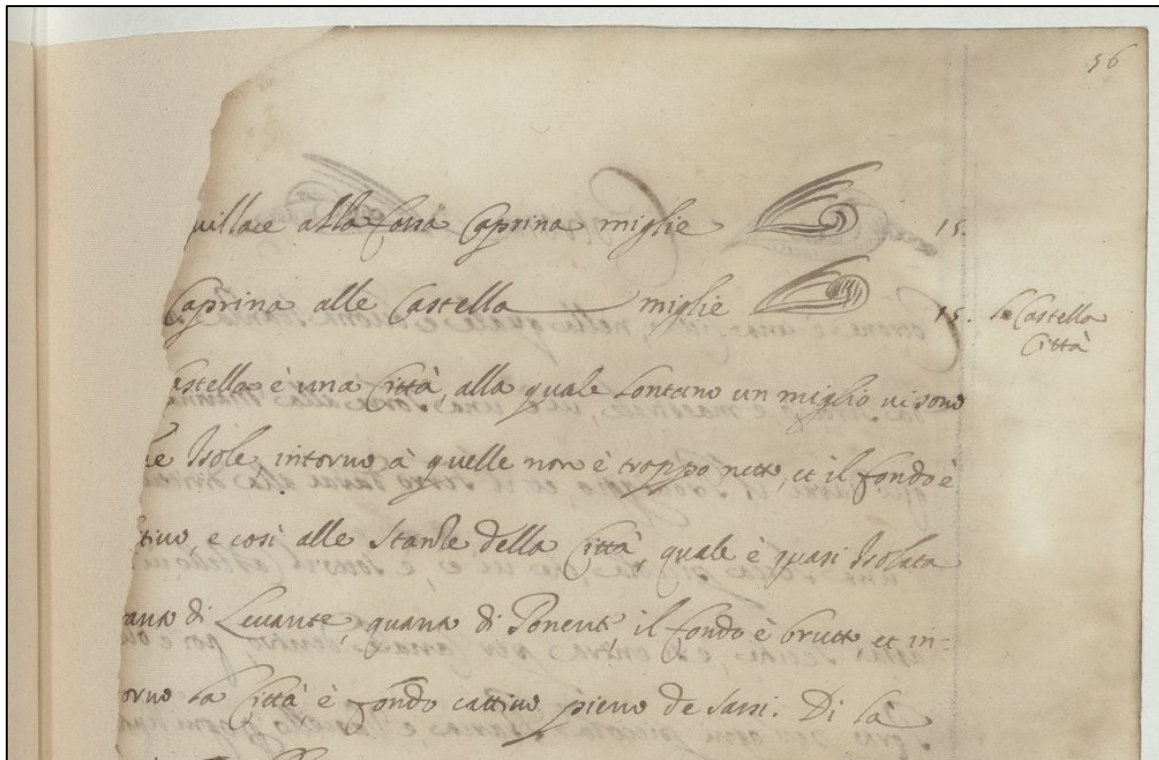 56
uillace alla fossa Caprina miglie 15.
Caprina alle Castella miglie 15.
le Castella
Città
astella è una Città, alla quale lontano un miglio vi sono
le Isole, intorno à quelle non è troppo netto, et il fondo è
ttivo e così alle stanze della Città, quale è quasi Isolata
tanto di Levante, quanto di Ponente, il fondo è brutto, et in=
orno la Città è fondo cattivo pieno de sassi. Di là